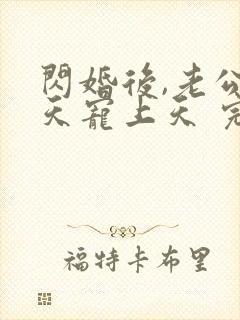 閃婚後,老公
天寵上天 完
福特卡布里